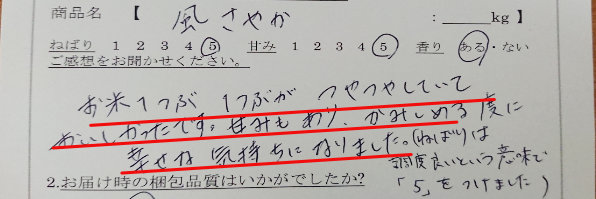 商品名 【 風さやか : ____kg 】
ねばり 1 2 3 4 5 甘み 1 2 3 4 5 香り ある・ない
ご感想をお聞かせください。
お米1つぶ 1つぶが つやつやしていて
おいしかったです。甘みもあり、かみしめる度に
幸せな気持ちになりました。(ねばりは
調度良いという意味で
「5」をつけました)
2.お届け時の梱包品質はいかがでしたか?